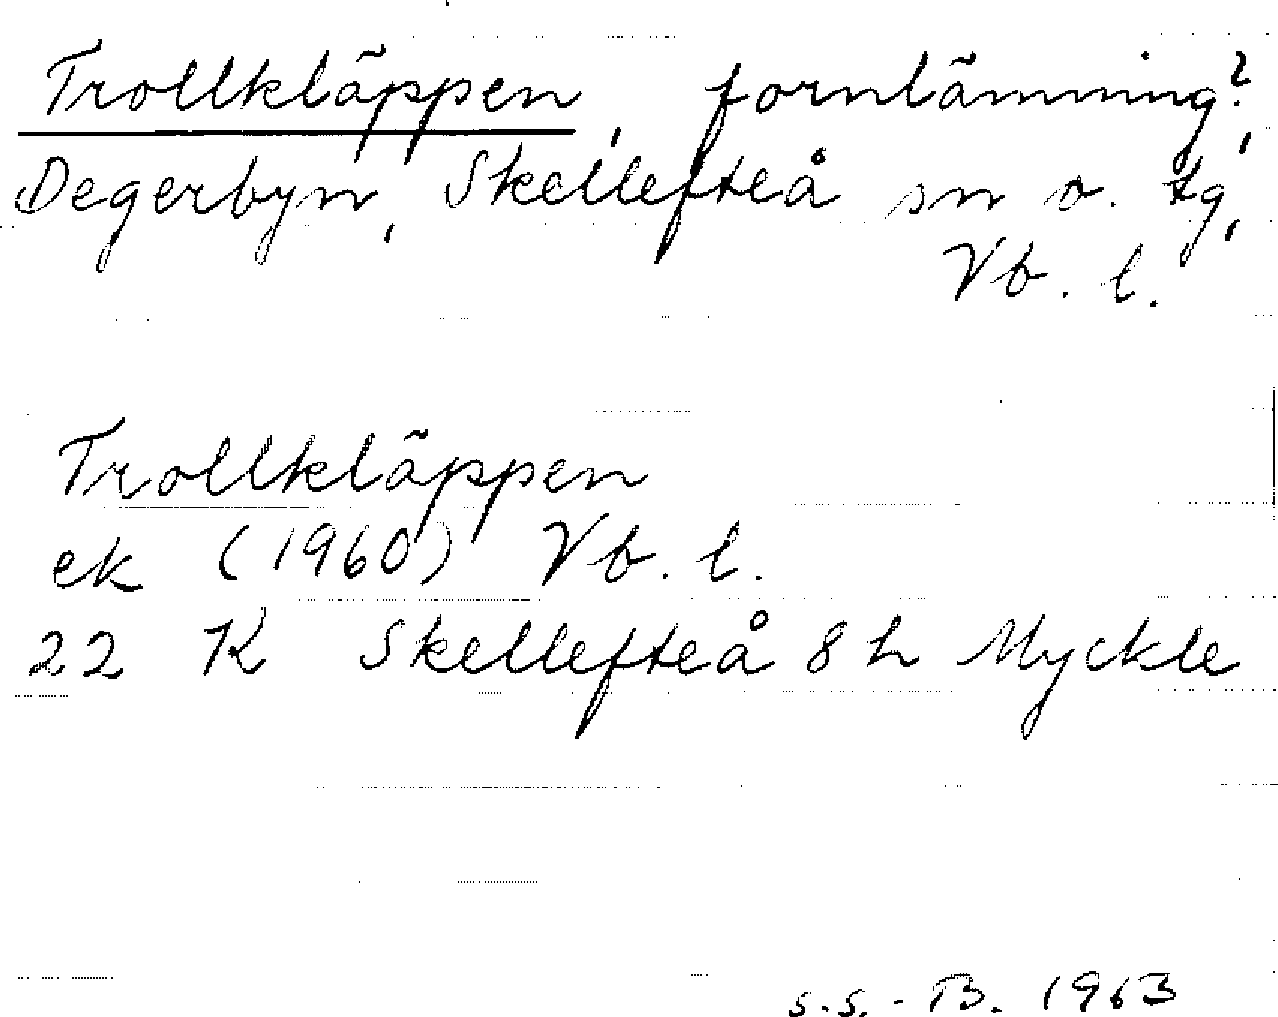 Trollkläppen, fornlämning?,
Degerbyn, Skellefteå sn o. tg,
Vb. l.
Trollkläppen
ek (1960) Vb. l.
22 K Skellefteå 8 h Myckle
S.S.-B. 1963